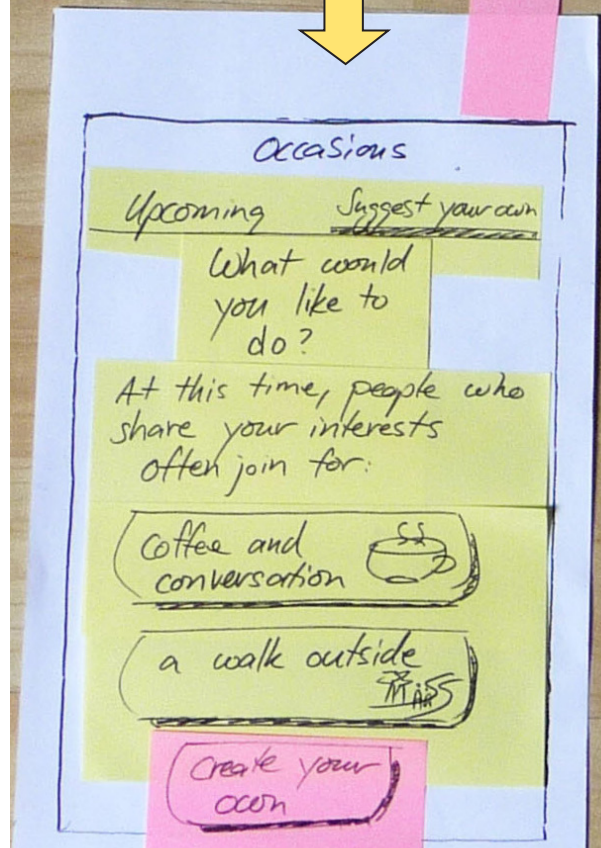 Occasions
Upcoming Suggest your own
What would
you like to
do?
At this time, people who
share your interests
often join for:
coffee and
conversation
a walk outside
create your
own